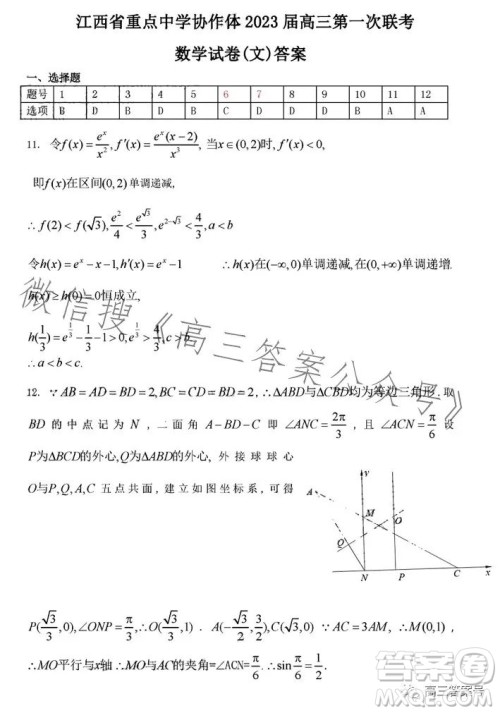 江西省重点中学协作体 2023 届高三第一次联考
数学试卷(文)答案
一、选择题
题号 1 2 3 4 5 6 7 8 9 10 11 12
选项 B D D B B C D D B D A A
11. 令f(x)=e^x/x^2, f′(x)=e^x(x−2)/x^3, 当x∈(0,2)时, f′(x)<0,
即f(x)在区间(0,2)单调递减,
∴f(2)<f(√3), e^2/4<e^√3/3, e^(2−√3)<4/3, a<b
令h(x)=e^x−x−1, h′(x)=e^x−1 ∴h(x)在(−∞,0)单调递减,在(0,+∞)单调递增.
h(x)≥h(0)=0恒成立,
h(1/3)=e^(1/3)−1/3−1>0, e^(1/3)>4/3, c>b
∴a<b<c.
12. ∵AB=AD=BD=2,BC=CD=2,∴△ABD与△CBD均为等边三角形.取
BD的中点记为N,二面角A−BD−C即∠ANC=2π/3,且∠ACN=π/6 设
P为△BCD的外心,Q为△ABD的外心,外接球球心
O与P,Q,A,C五点共面,建立如图坐标系,可得
y
A
M
O
Q
N
P
C
x
P(√3/3,0),∠ONP=π/3,∴O(√3/3,1). A(−√3/2,3/2),C(√3,0) ∵AC=3AM,∴M(0,1),
∴MO平行与x轴∴MO与AC的夹角=∠ACN=π/6.∴sinπ/6=1/2.
微信搜《高三答案公众号》
答案圈
高三答案号